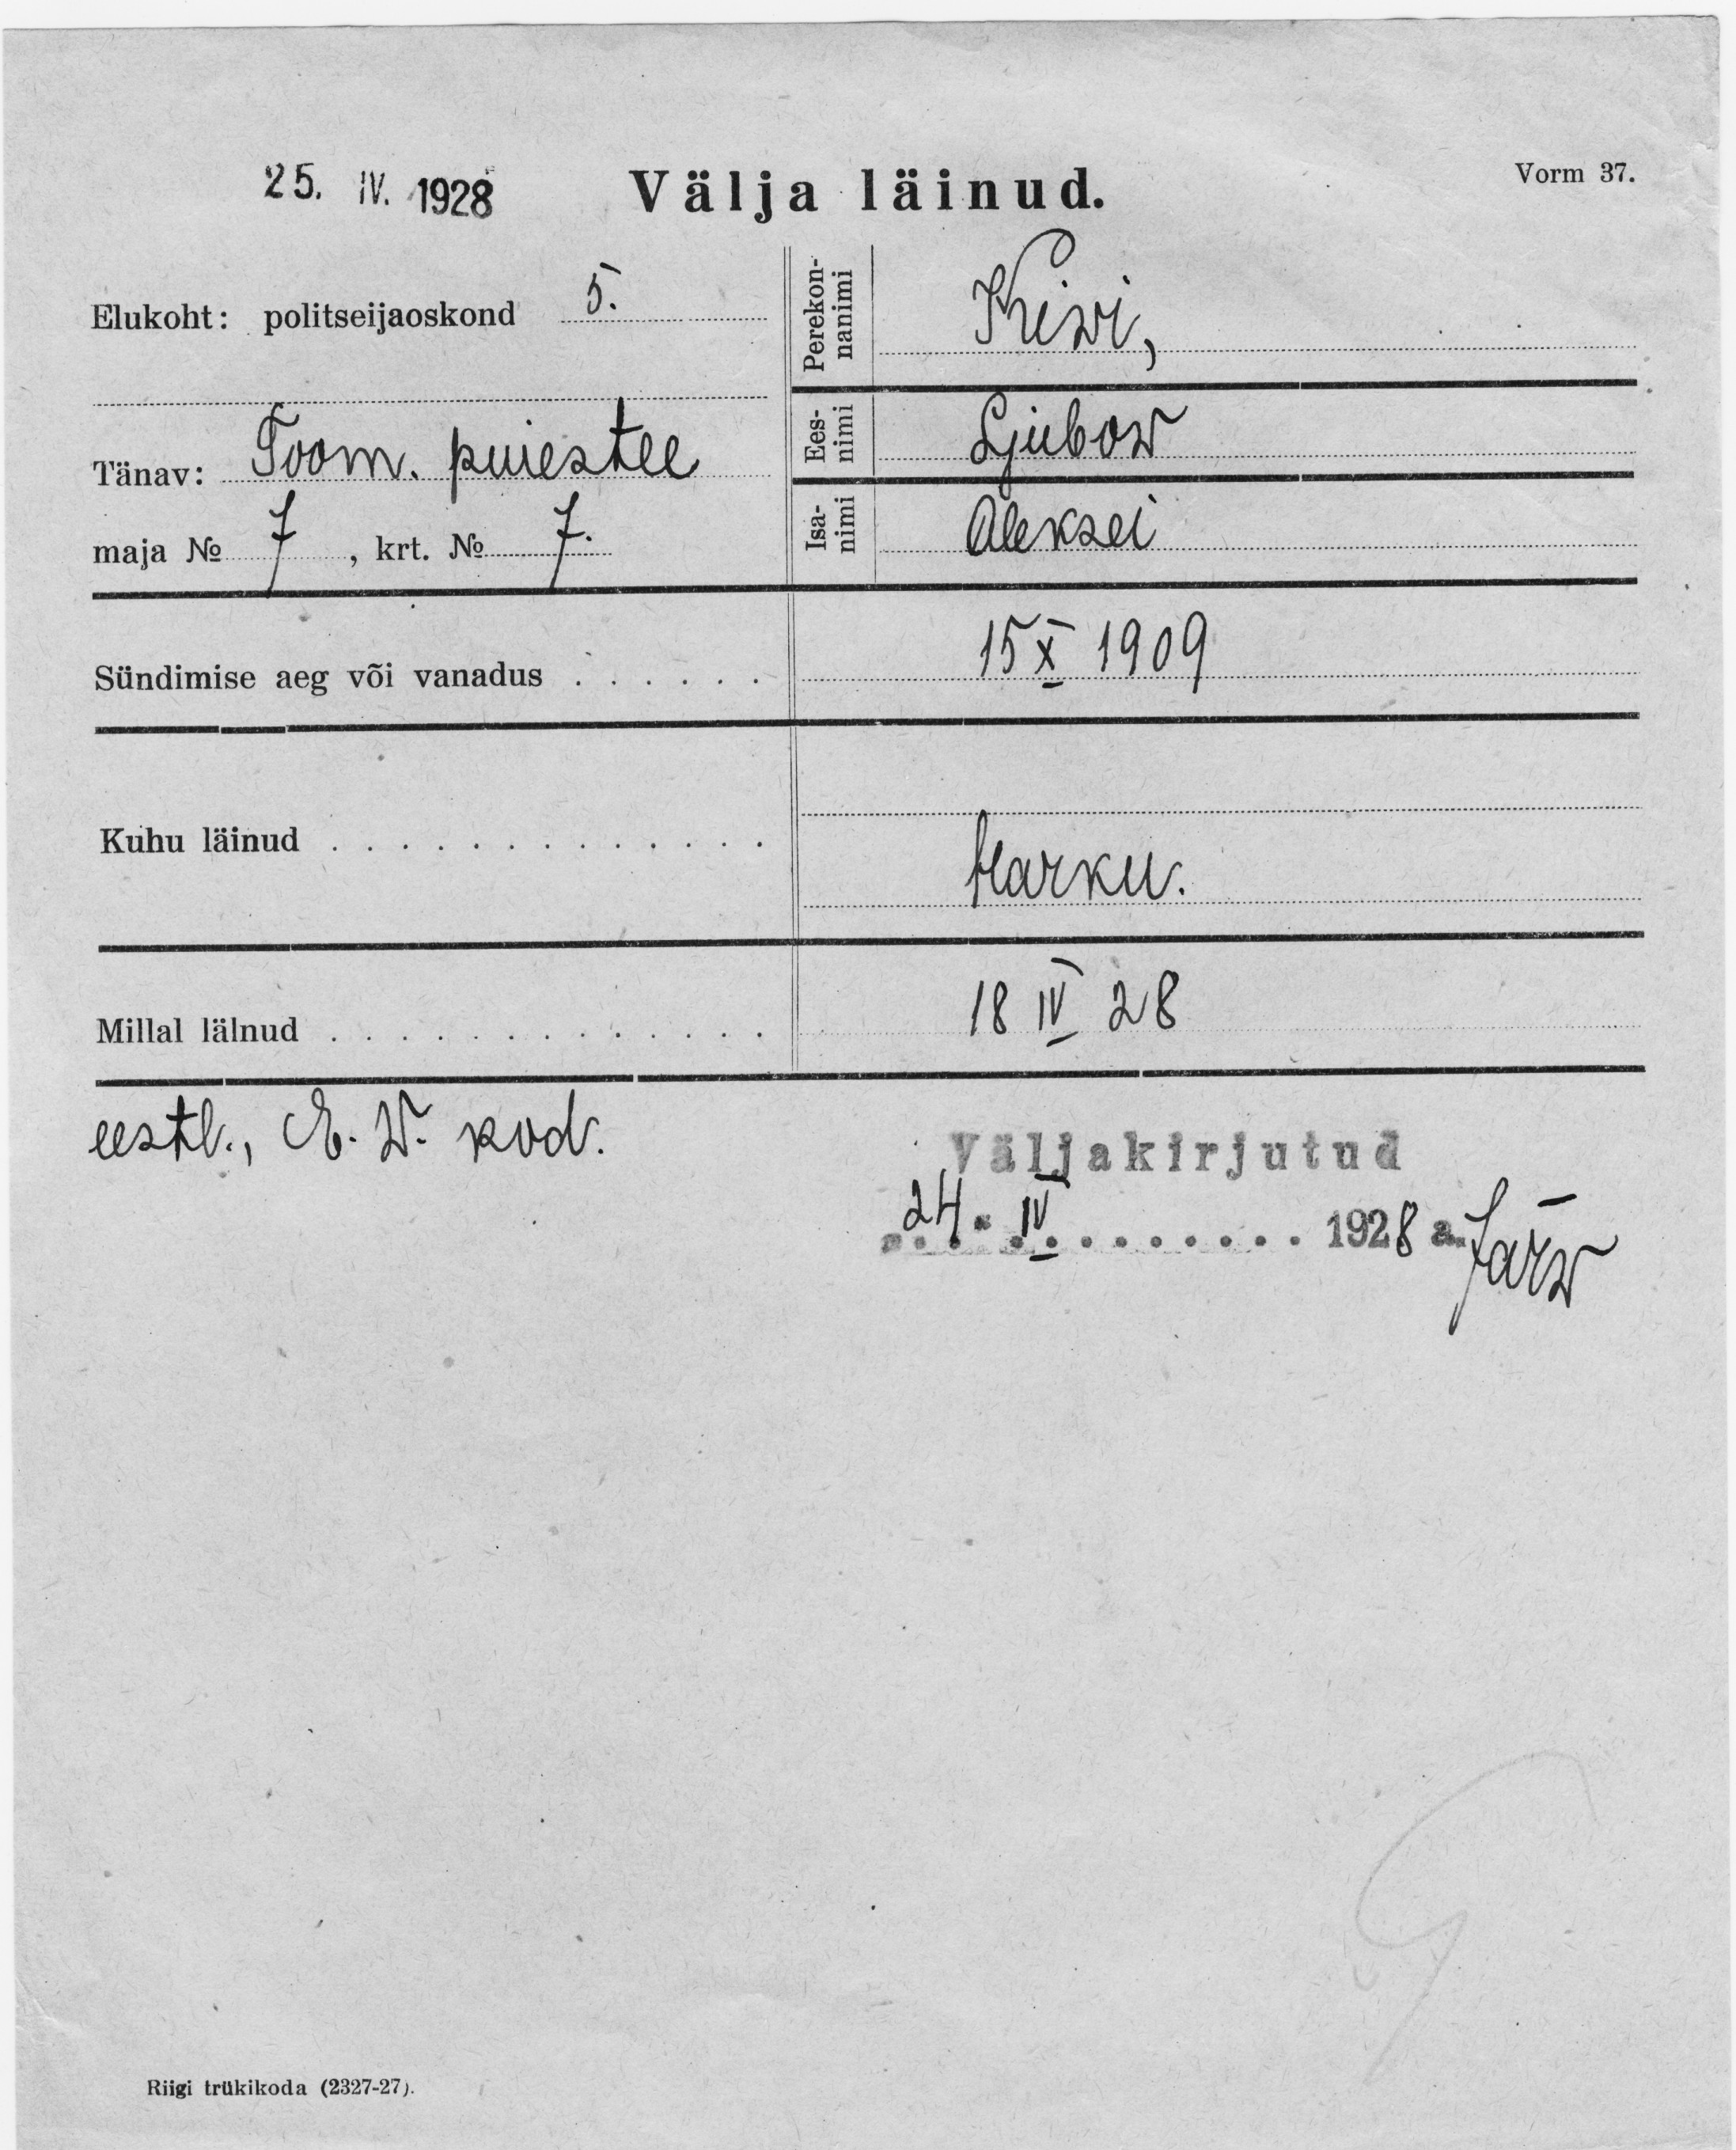 25. IV. 1928
Välja läinud.
Vorm 37.
Elukoht: politseijaoskond 5.
Tänav: Toom. puiestee
maja № 7, krt. № 7.
Perekon-
nanimi
Kiwi,
Ees-
nimi
Ljubow
Isa-
nimi
Aleksei
Sündimise aeg või vanadus . . . . . . 15 X 1909
Kuhu läinud . . . . . . . . . . . . . Harku.
Millal lälnud . . . . . . . . . . . . . 18 IV 28
eestl., E. W. kod.
Väljakirjutud
24. IV . . . . . . . . 1928 a. Järw
Riigi trükikoda (2327-27).